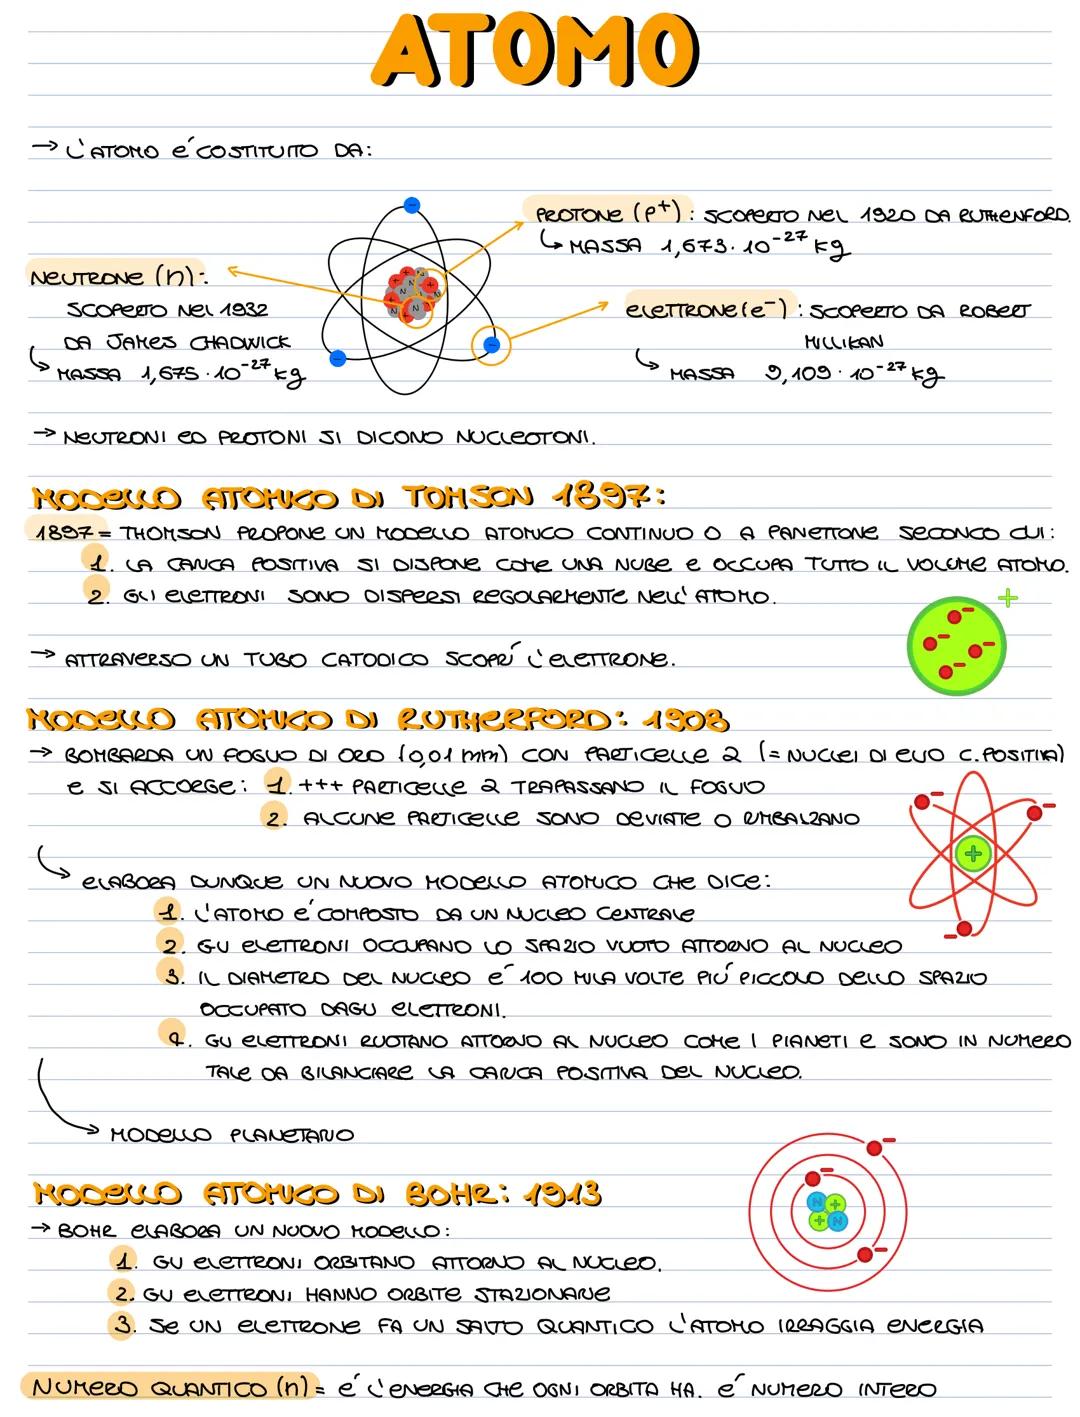 ATOMO
→ L'ATOMO É COSTITUITO DA:
PROTONE (p+): SCOPERTO NEL 1920 DA RUTHENFORD.
↳ MASSA 1,673·10⁻²⁷ kg
NEUTRONE (n):
SCOPERTO NEL 1932
DA JAMES CHADWICK
↳ MASSA 1,675·10⁻²⁷ kg
ELETTRONE (e⁻): SCOPERTO DA ROBERT
MILLIKAN
↳ MASSA 9,109·10⁻²⁷ kg
→ NEUTRONI ED PROTONI SI DICONO NUCLEOTONI.
MODELLO ATOMICO DI TOMSON 1897:
1897= THOMSON PROPONE UN MODELLO ATOMICO CONTINUO O A PANETTONE SECONCO CUI:
1. LA CARICA POSITIVA SI DISPONE COME UNA NUBE E OCCUPA TUTTO IL VOLUME ATOMO.
2. GLI ELETTRONI SONO DISPERSI REGOLARMENTE NELL'ATOMO.
→ ATTRAVERSO UN TUBO CATODICO SCOPRÍ L'ELETTRONE.
MODELLO ATOMICO DI RUTHERFORD: 1908
→ BOMBARDA UN FOGLIO DI ORO (0,01 mm) CON PARTICELLE 2 (= NUCLEI DI ELIO C. POSITIVA)
E SI ACCORGE: 1. +++ PARTICELLE 2 TRAPASSANO IL FOGLIO
2. ALCUNE PARTICELLE SONO DEVIATE O RIMBALZANO
↳ ELABORA DUNQUE UN NUOVO MODELLO ATOMICO CHE DICE:
1. L'ATOMO É COMPOSTO DA UN NUCLEO CENTRALE
2. GLI ELETTRONI OCCUPANO LO SPAZIO VUOTO ATTORNO AL NUCLEO
3. IL DIAMETRO DEL NUCLEO É 100 MILA VOLTE PIÚ PICCOLO DELLO SPAZIO
OCCUPATO DAGLI ELETTRONI.
4. GLI ELETTRONI RUOTANO ATTORNO AL NUCLEO COME I PIANETI E SONO IN NUMERO
TALE DA BILANCIARE LA CARICA POSITIVA DEL NUCLEO.
↳ MODELLO PLANETARIO
MODELLO ATOMICO DI BOHR: 1913
→ BOHR ELABORA UN NUOVO MODELLO:
1. GLI ELETTRONI ORBITANO ATTORNO AL NUCLEO.
2. GLI ELETTRONI HANNO ORBITE STAZIONARIE
3. SE UN ELETTRONE FA UN SALTO QUANTICO L'ATOMO IRRAGGIA ENERGIA
NUMERO QUANTICO (n) = É L'ENERGIA CHE OGNI ORBITA HA. É NUMERO INTERO